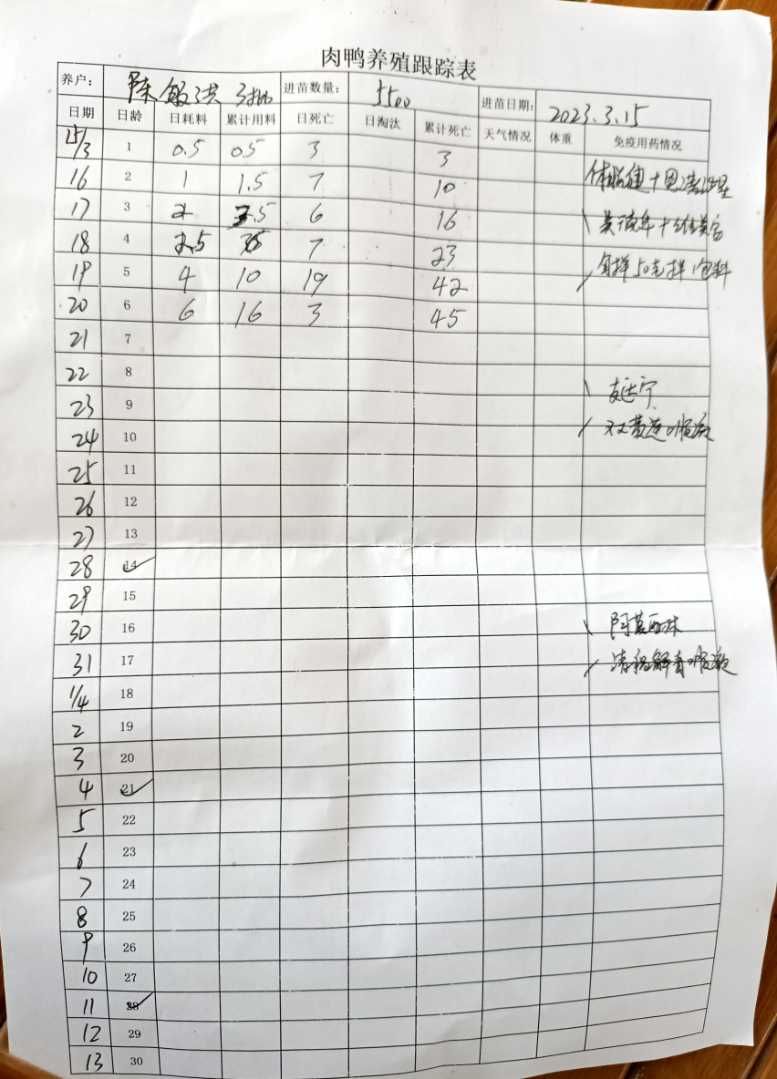 肉鸭养殖跟踪表
养户： 陈敏洪 3批 进苗数量： 5500 进苗日期： 2023.3.15
日期 日龄 日耗料 累计用料 日死亡 日淘汰 累计死亡 天气情况 体重 免疫用药情况
15/3 1 0.5 0.5 3 3
16 2 1 1.5 7 10
17 3 2 3.5 6 16
18 4 2.5 7 23
19 5 4 10 19 42
20 6 6 16 3 45
21 7
22 8
23 9
24 10 双黄连口服液
25 11
26 12
27 13
28 14
29 15
30 16
31 17 清瘟解毒口服液
1/4 18
2 19
3 20
4 21
5 22
6 23
7 24
8 25
9 26
10 27
11 28
12 29
13 30